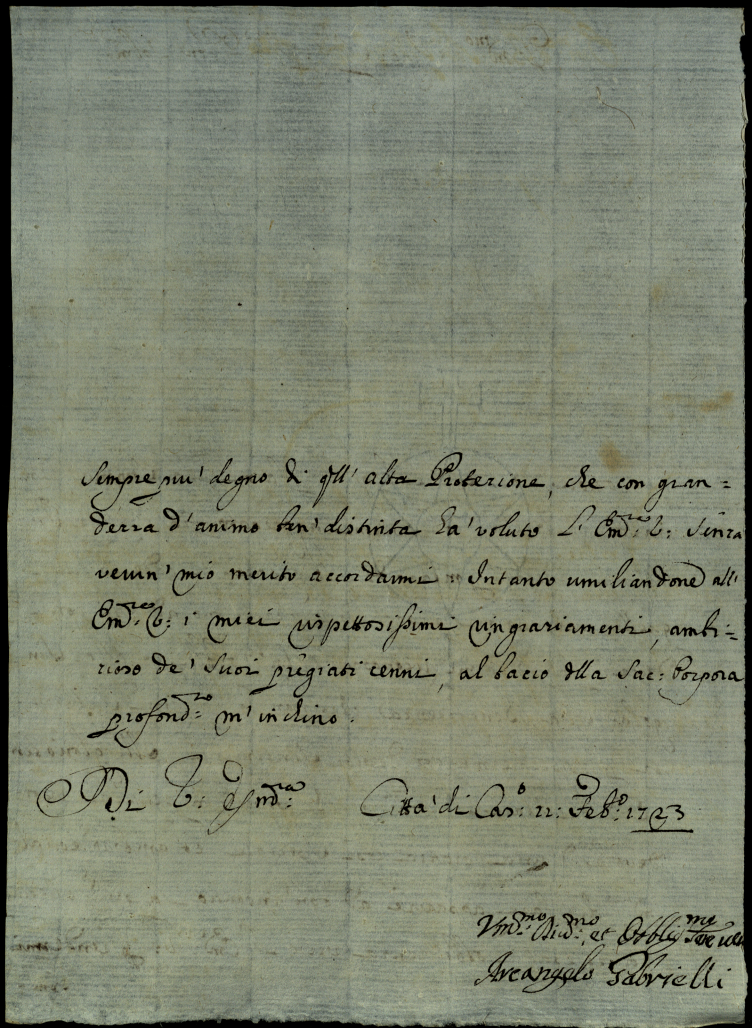 sempre piu' degno di qll' alta Protezione, che con gran=
dezza d'animo ben' distinta ha' voluto l' Em:za V: senza
verun' mio merito accordarmi: Intanto umiliandone all'
Em:za V: i miei rispettosissimi ringraziamenti, ambi=
zioso de' suoi pregiati cenni, al bacio dlla Sac: Porpora
profond:te m'inchino.
Di V: Em:za Città di Cas:o 11: Feb:o 1723
Um:mo Div:mo, et Obblig:mo
Arcangelo Gabrielli